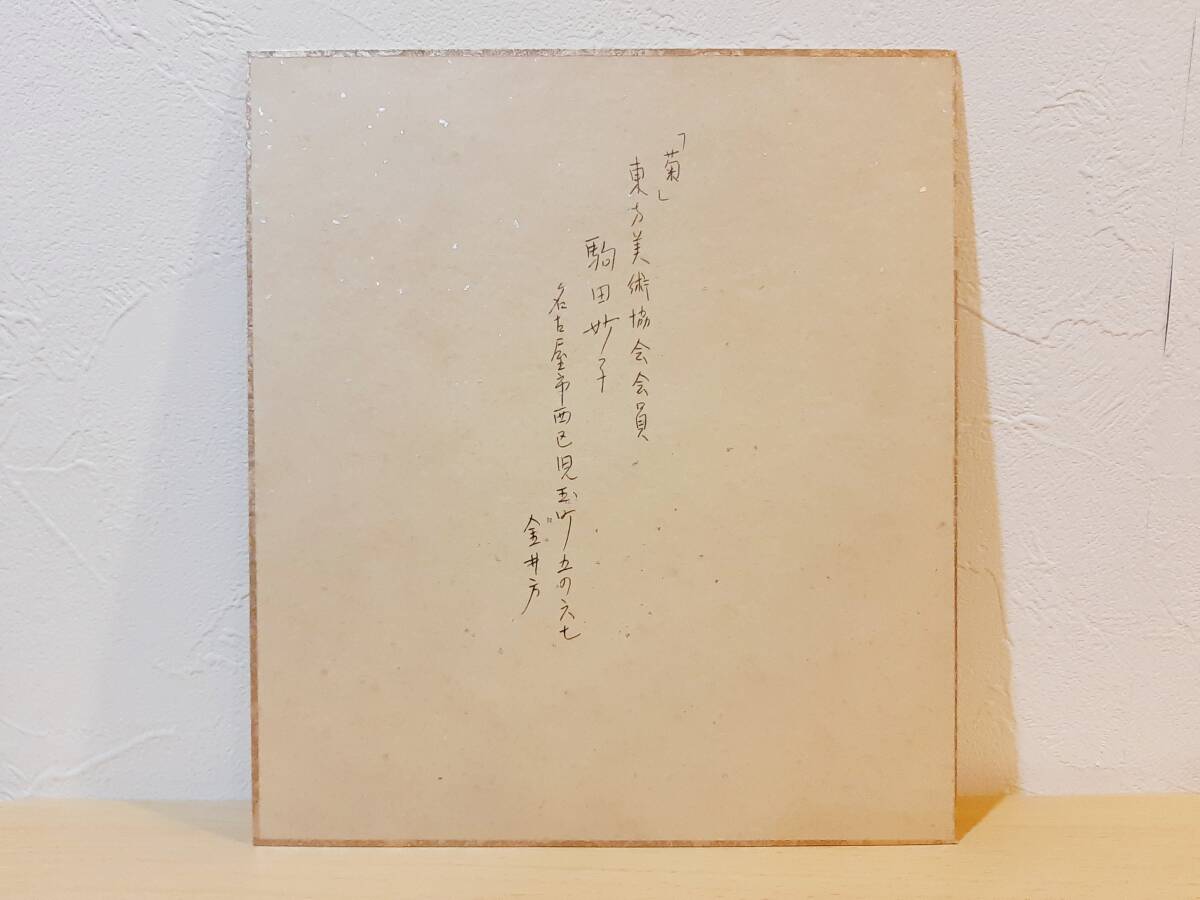 「菊」
東方美術協会会員
駒田妙子
名古屋市西区児玉町五の六七
金井方